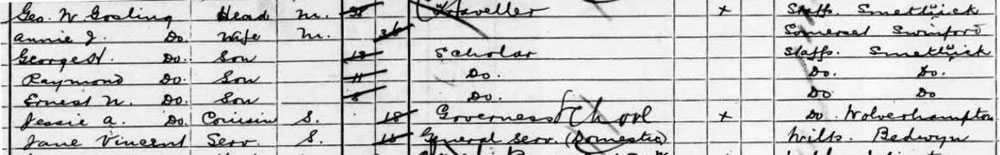 Geo. W. Gosling Head M. Traveller x Staffs Smethwick
Annie J. Do. Wife M. 36 Somerset Swinford
George H. Do. Son Scholar Staffs. Smethwick
Raymond Do. Son 11 Do. Do. Do.
Ernest N. Do. Son 8 Do. Do. Do
Jessie A. Do. Cousin S. 18 Governess School x Do. Wolverhampton
Jane Vincent Serv. S. General Serv. (Domestic) Wilts. Bedwyn